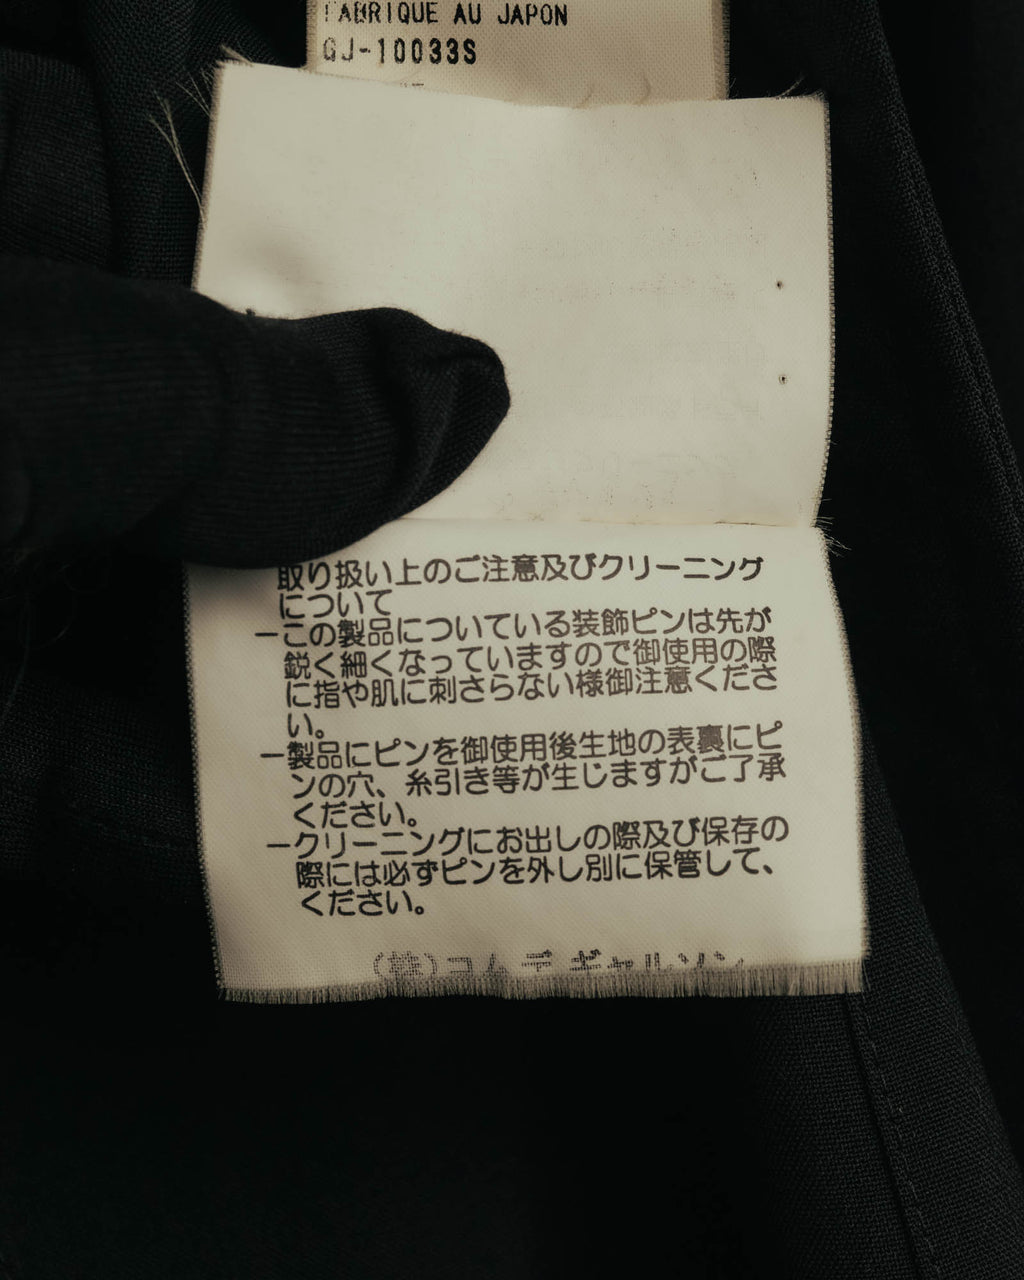 FABRIQUE AU JAPON
GJ-10033S
取り扱い上のご注意及びクリーニング
について
ーこの製品についている装飾ピンは先が
鋭く細くなっていますので御使用の際
に指や肌に刺さらない様御注意くださ
い。
ー製品にピンを御使用後生地の表裏にピ
ンの穴、糸引き等が生じますがご了承
ください。
ークリーニングにお出しの際及び保存の
際には必ずピンを外し別に保管して、
ください。
(株)コム デ ギャルソン